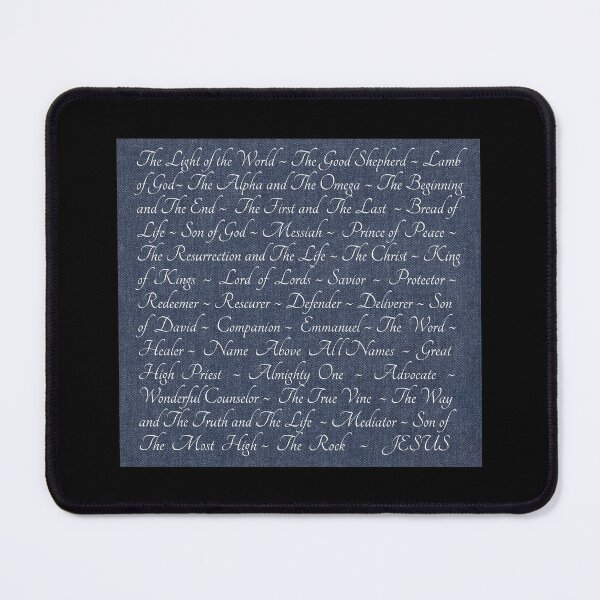 The Light of the World ~ The Good Shepherd ~ Lamb
of God~ The Alpha and The Omega ~ The Beginning
and The End ~ The First and The Last ~ Bread of
Life ~ Son of God ~ Messiah ~ Prince of Peace ~
The Resurrection and The Life ~ The Christ ~ King
of Kings ~ Lord of Lords ~ Savior ~ Protector ~
Redeemer ~ Rescurer ~ Defender ~ Deliverer ~ Son
of David ~ Companion ~ Emmanuel ~ The Word ~
Healer ~ Name Above All Names ~ Great
High Priest ~ Almighty One ~ Advocate ~
Wonderful Counselor ~ The True Vine ~ The Way
and The Truth and The Life ~ Mediator ~ Son of
The Most High ~ The Rock ~ JESUS